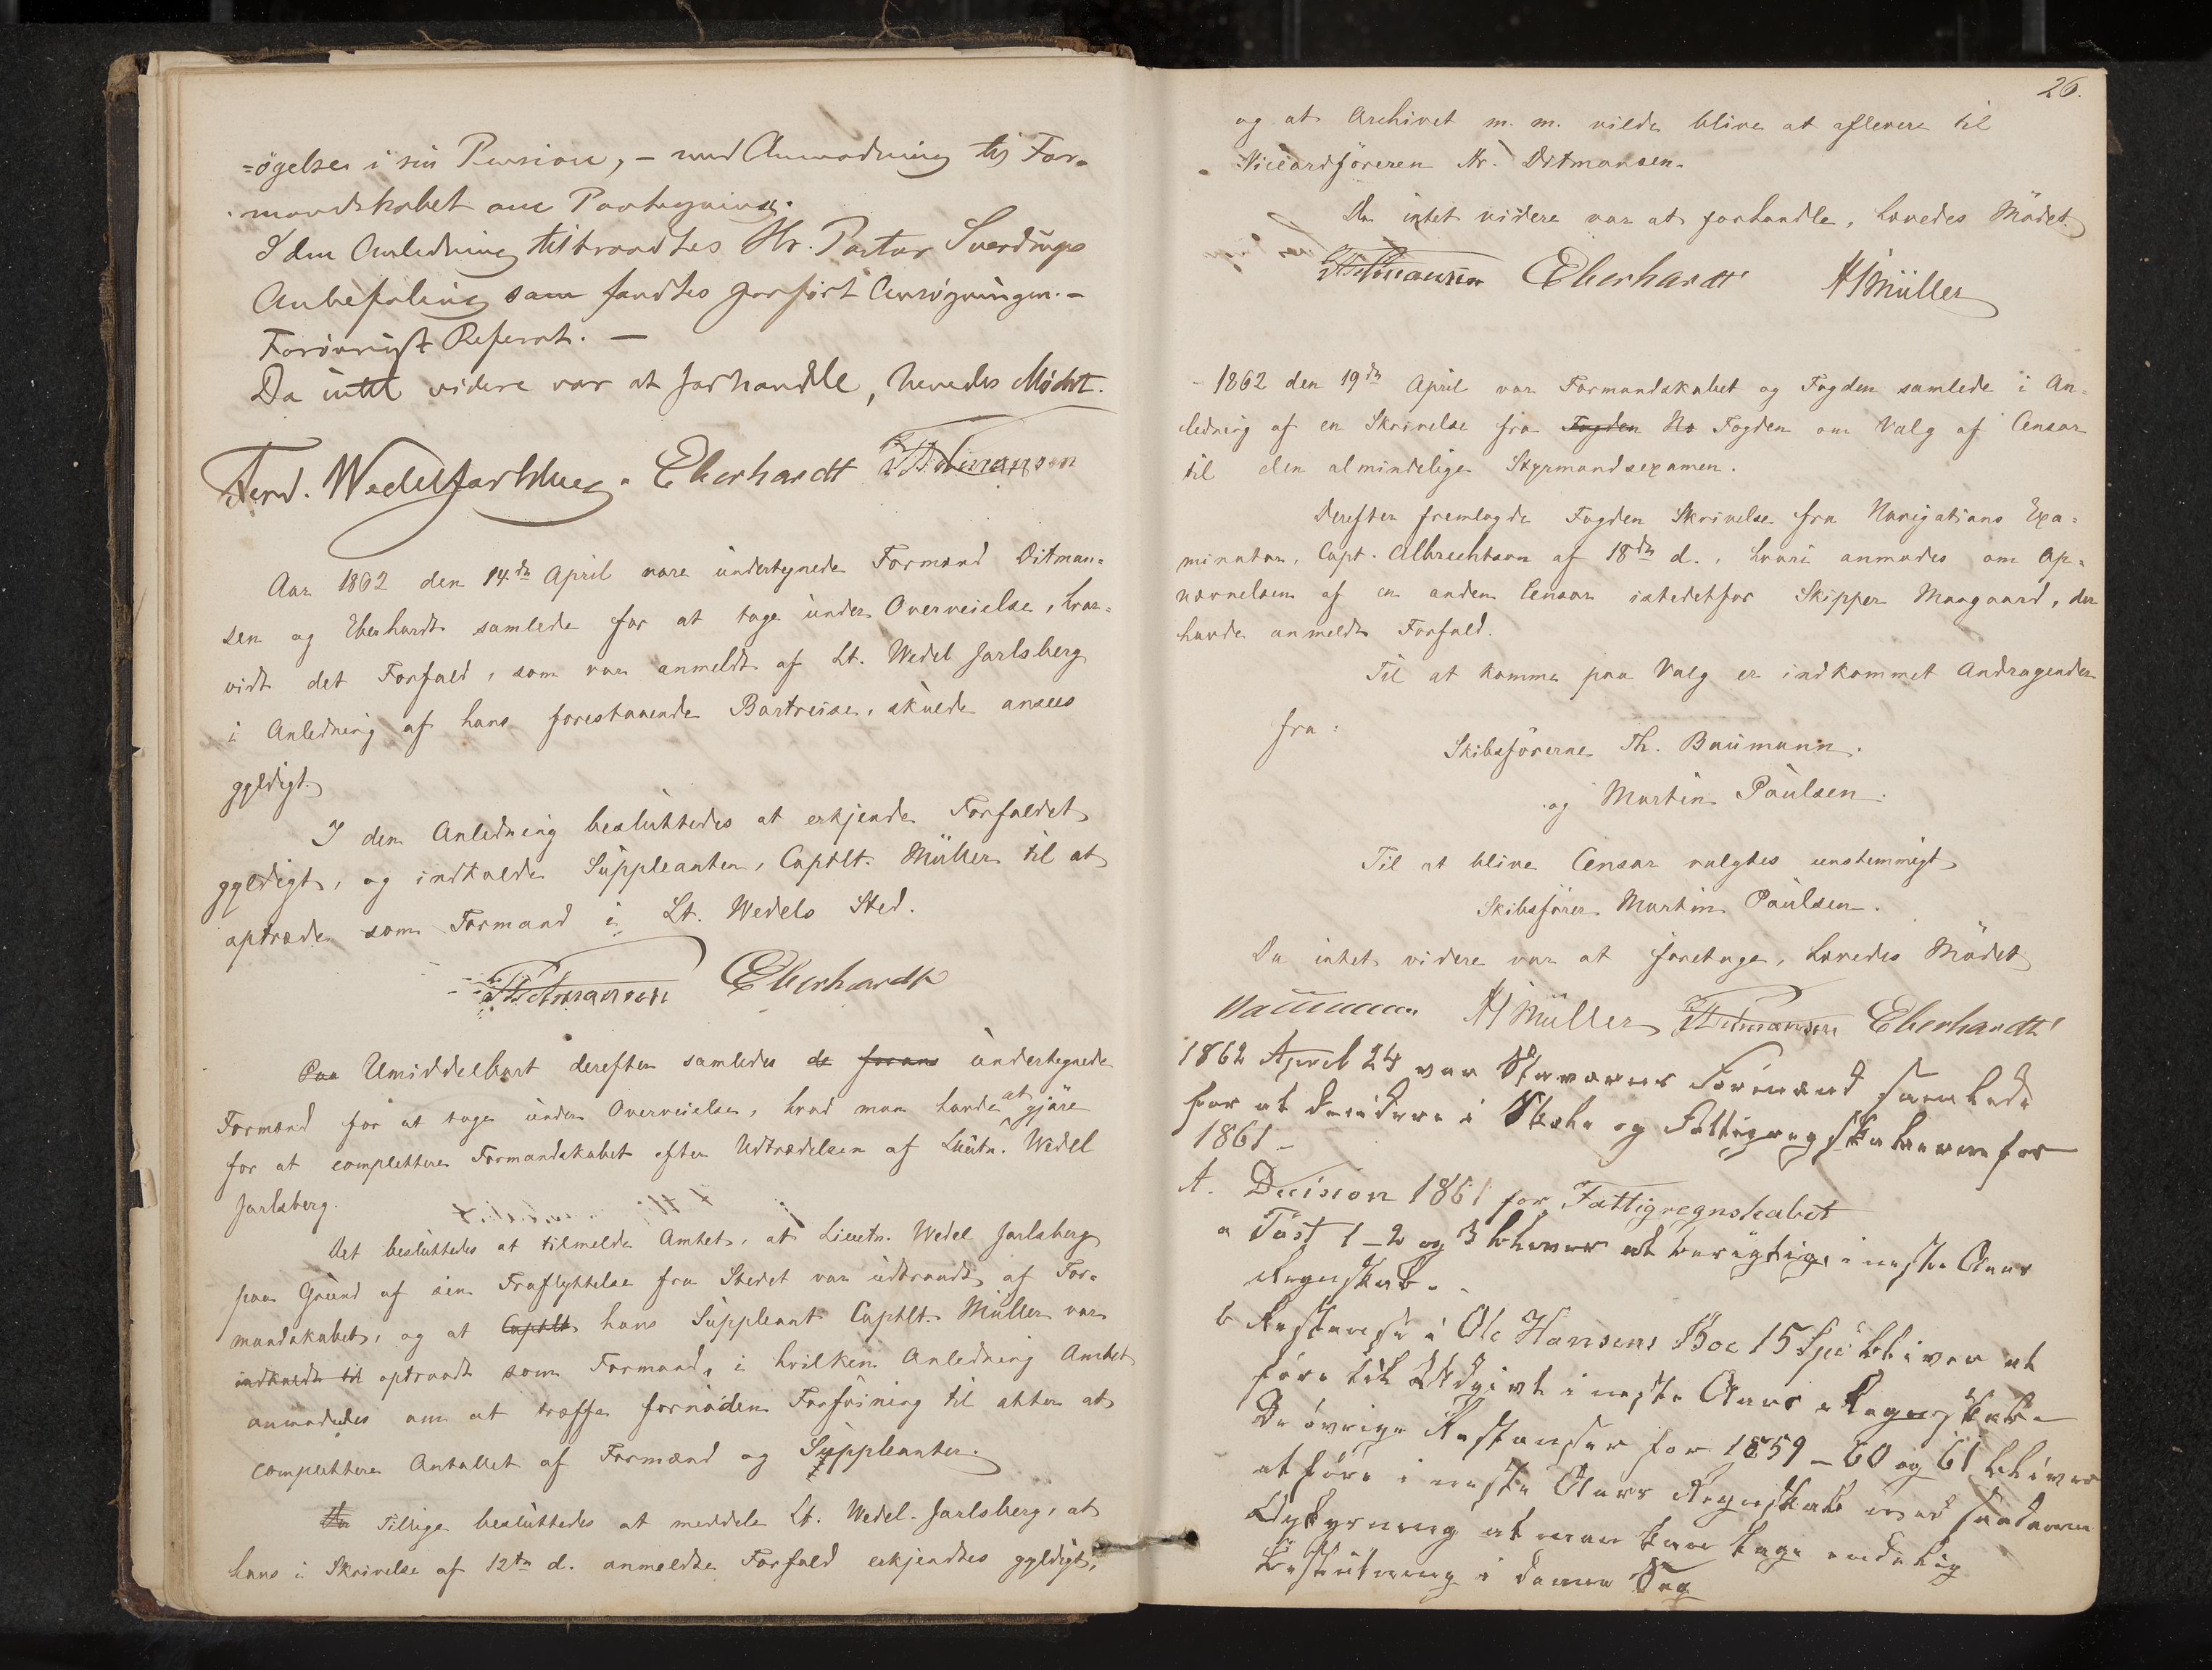 =øgelse i sin Pension, – med Anmodning til For=
mandskabet om Paategning.
I den Anledning tiltraadtes Hr. Pastor Sverdrups
Anbefaling som fandtes paaført Ansøgningen. –
Forøvrigt Referat. –
Da intet videre var at forhandle, hævedes Mødet.
Ferd. Wedel Jarlsberg. Eberhardt Ditmansen
Aar 1862 den 14de April vare undertegnede Formænd Ditman=
sen og Eberhardt samlede for at tage under Overveielse, hvor=
vidt det Forfald, som var anmeldt af Lt. Wedel Jarlsberg
i Anledning af hans forestaaende Bortreise, skulde ansees
gyldigt.
I den Anledning besluttedes at erkjende Forfaldet
gyldigt, og indkalde Suppleanten, Captlt. Müller til at
optræde som Formand i Lt. Wedels Sted.
Ditmansen Eberhardt
Paa Umiddelbart derefter samledes de forans undertegnede
Formænd for at tage under Overveielse, hvad man havde at gjøre
for at complettere Formandskabet efter Udtrædelsen af Lieutn. Wedel
Jarlsberg.
Det besluttedes at tilmelde Amtet, at Lieutn. Wedel Jarlsberg
paa Grund af sin Fraflyttelse fra Stedet var udtraadt af For=
mandskabet, og at Captlt hans Suppleant Captlt. Müller var
indkaldt til optraadt som Formand, i hvilken Anledning Amtet
anmodedes om at træffe fornøden Forføining til atter at
complettere Antallet af Formænd og Suppleanter.
Tillige besluttedes at meddele Lt. Wedel-Jarlsberg, at
hans i Skrivelse af 12te d. anmeldte Forfald erkjendtes gyldigt,
26.
og at Archivet m. m. vilde blive at aflevere til
Viceordføreren Hr. Ditmansen.
Da intet videre var at forhandle, hævedes Mødet.
Ditmansen Eberhardt HMüller
1862 den 19de April var Formandskabet og Fogden samlede i An=
ledning af en Skrivelse fra Fogden Fogden om Valg af Censor
til den almindelige Styrmandsexamen.
Derefter fremlagde Fogden Skrivelse fra Navigations Exa=
minator, Capt. Albrechtson af 18de d., hvori anmodes om Op=
nævnelsen af en anden Censor istedetfor Skipper Maagaard, der
havde anmeldt Forfald.
Til at komme paa Valg er indkommet Andragender
fra:
Skibsførerne Th. Baumann.
og Martin Paulsen.
Til at blive Censor valgtes eenstemmigt
Skibsfører Martin Paulsen.
Da intet videre var at foretage, hævedes Mødet
HMüller Ditmansen Eberhardt
1862 April 24 var Staværns Formænd samlede
for at decidere i Skole og Fattigregnskaberne for
1861 –
A. Decision 1861 for Fattigregnskabet
a Post 1–2 og 3 bliver at berigtige i neste Aars
Regnskab.
b Restance i Ole Hansens Boe 15 Spd bliver at
føre til Udgivt i neste Aars Regnskab.
De øvrige Restanser for 1859–60 og 61 bliver
at føre i neste Aars Regnskab med saadan
Oplysning at man kan tage endelig
Beslutning i denne Sag